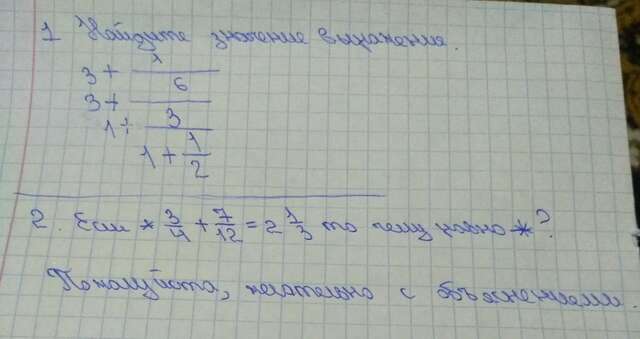 1 Найдите значение выражения.
3 + 1
6
3 +
3
1 +
1 + 1/2
2. Если * 3/4 + 7/12 = 2 1/3 то чему равно *?
Пожалуйста, желательно с объяснениями.